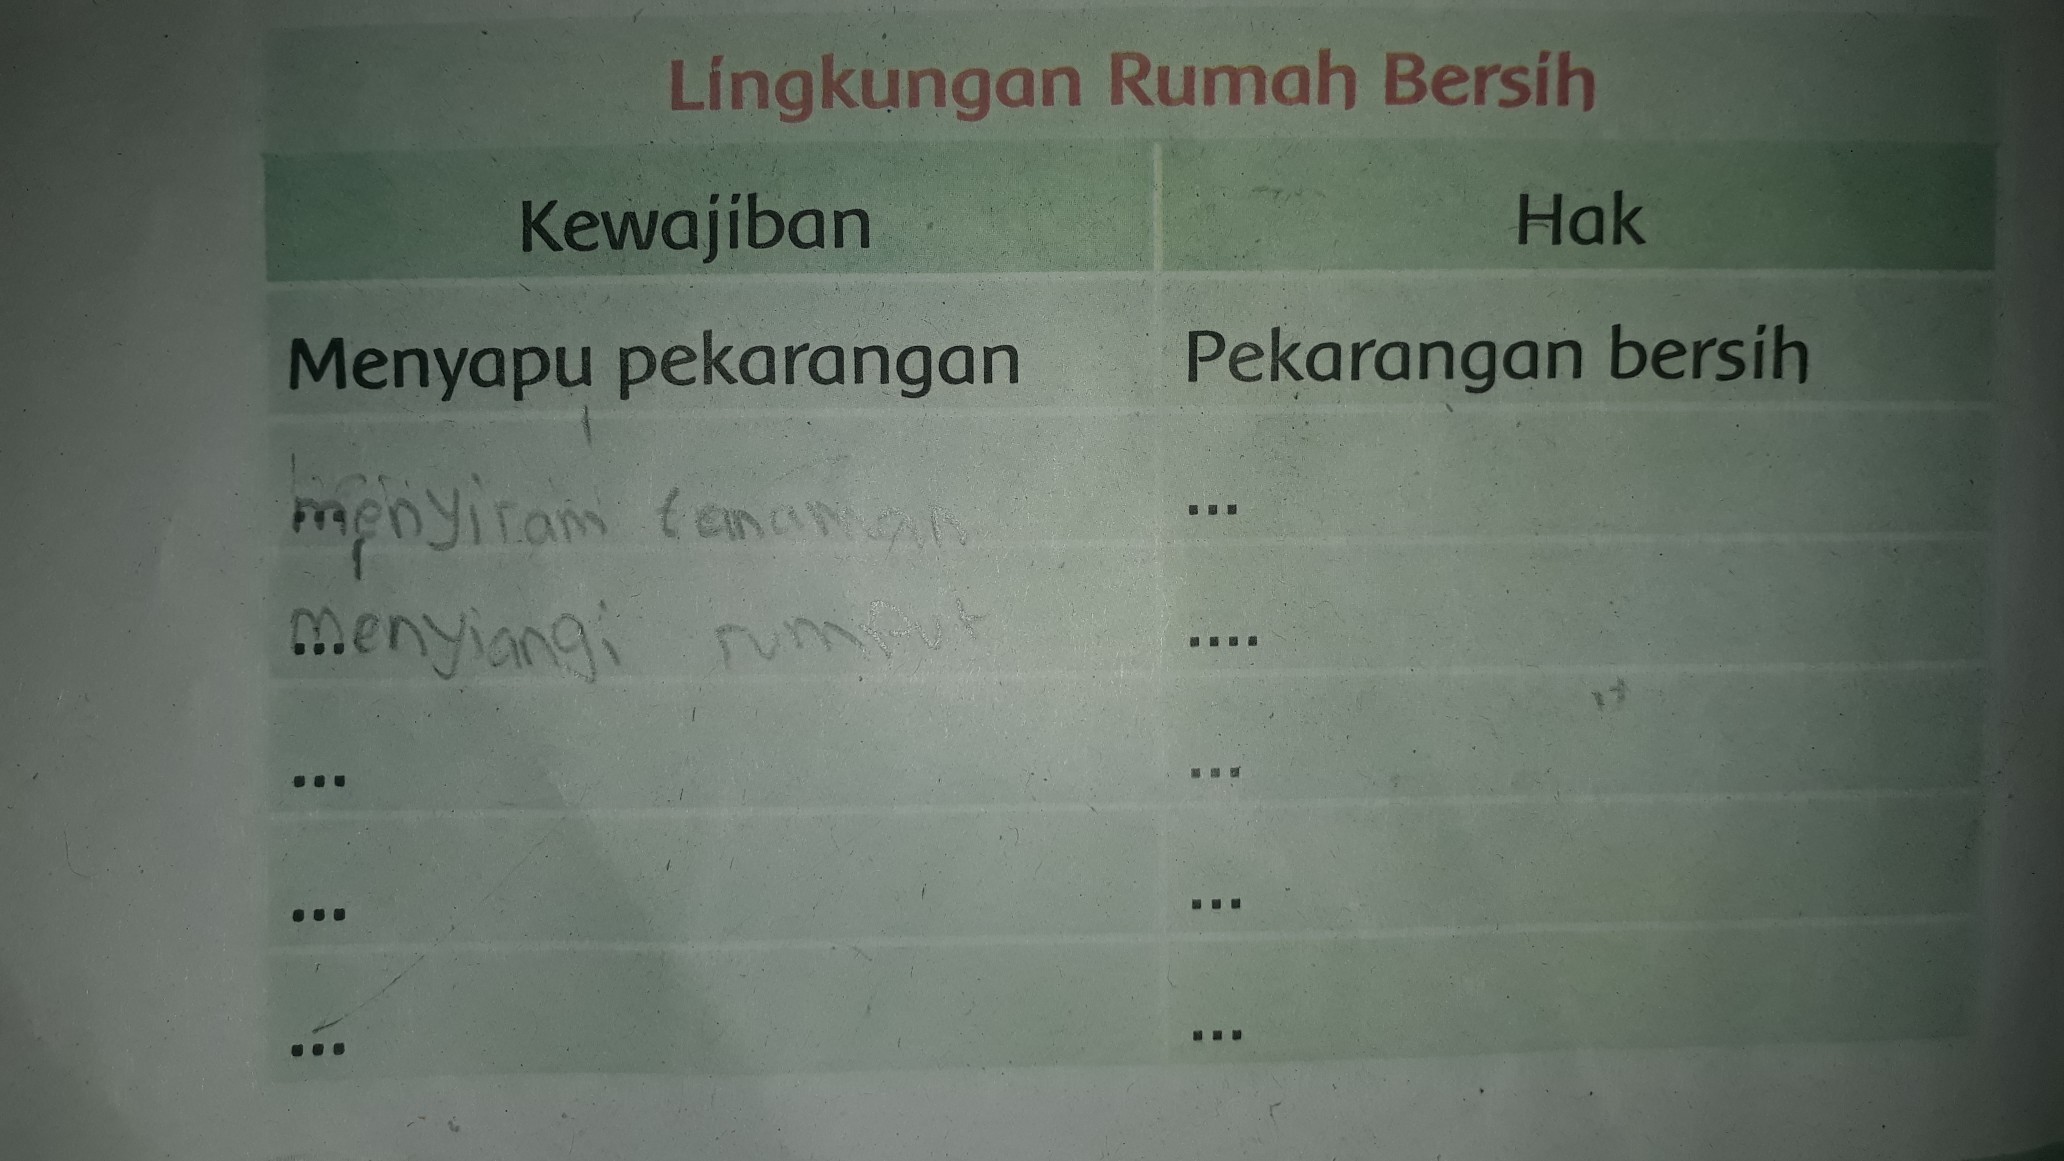 Lingkungan Rumah Bersih
Kewajiban Hak
Menyapu pekarangan Pekarangan bersih
menyiram tanaman ...
menyiangi rumput ....
... ...
... ...
... ...